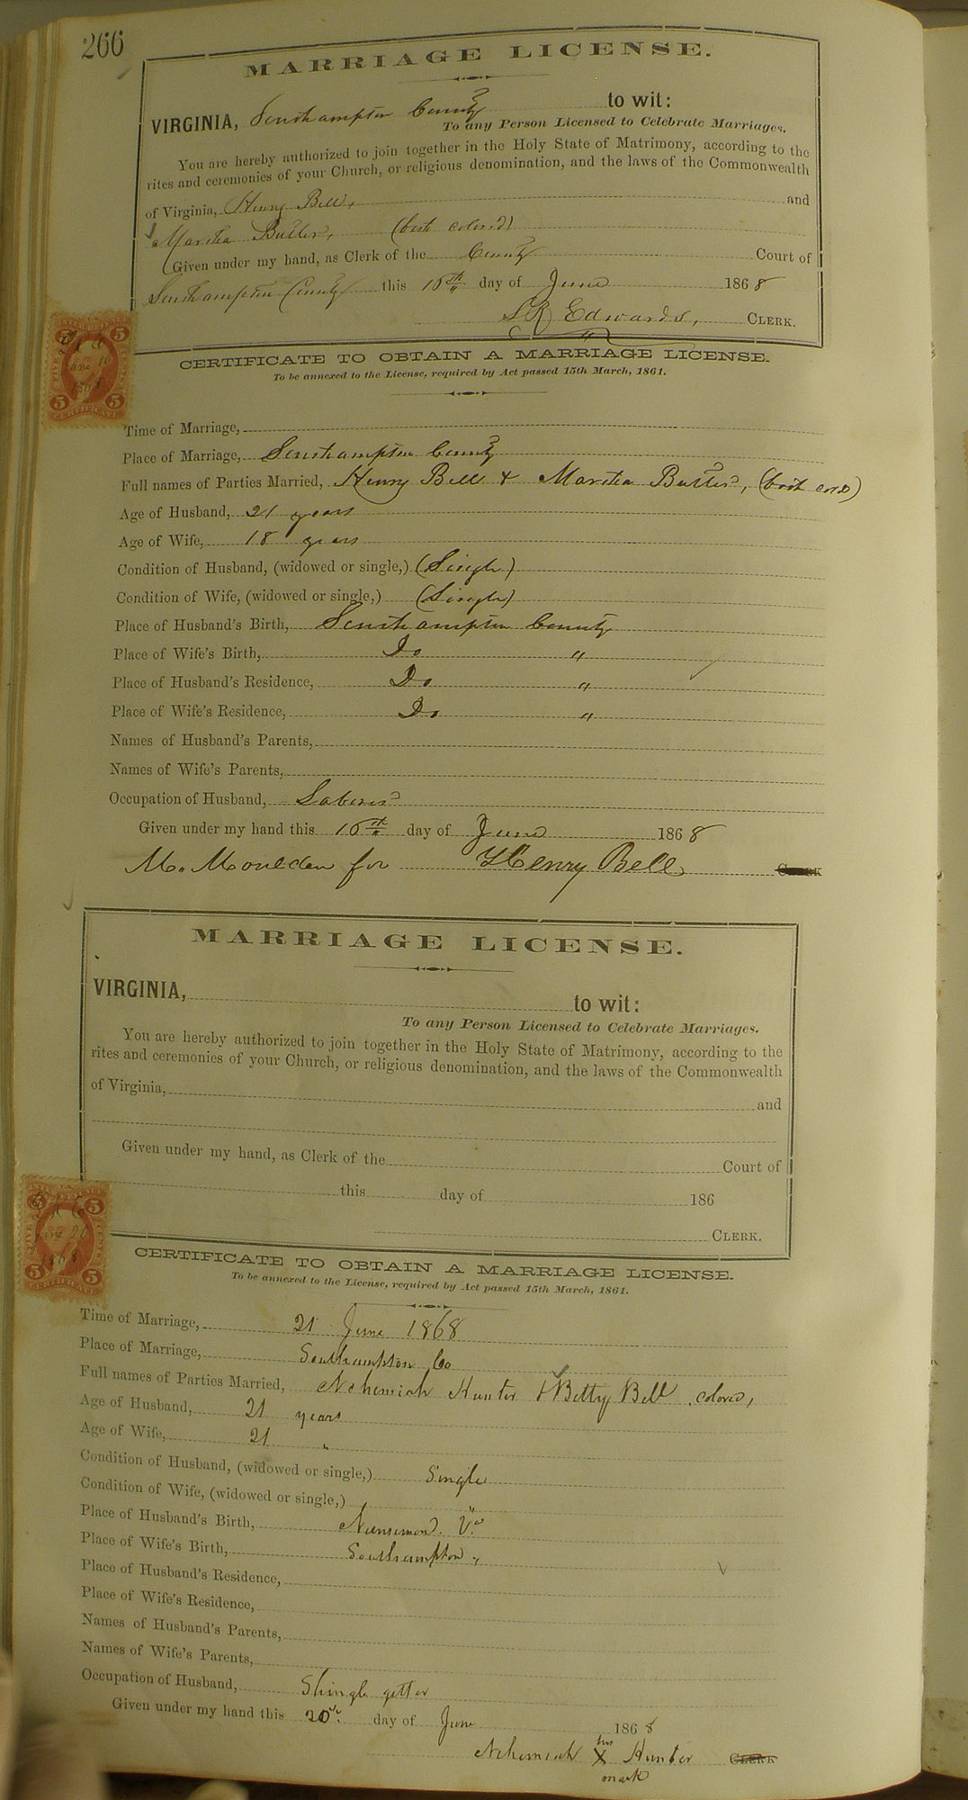 266
MARRIAGE LICENSE.
VIRGINIA, Southampton County to wit:
To any Person Licensed to Celebrate Marriages.
You are hereby authorized to join together in the Holy State of Matrimony, according to the
rites and ceremonies of your Church, or religious denomination, and the laws of the Commonwealth
of Virginia, Henry Bell, and
Martha Butler, (both colored)
Given under my hand, as Clerk of the County Court of
Southampton County this 16th day of June 1868
L R Edwards, CLERK.
CERTIFICATE TO OBTAIN A MARRIAGE LICENSE.
To be annexed to the License, required by Act passed 15th March, 1861.
Time of Marriage,
Place of Marriage, Southampton County
Full names of Parties Married, Henry Bell & Martha Butler, (both cold)
Age of Husband, 21 years
Age of Wife, 18 years
Condition of Husband, (widowed or single,) (Single)
Condition of Wife, (widowed or single,) (Single)
Place of Husband's Birth, Southampton County
Place of Wife's Birth, Do "
Place of Husband's Residence, Do "
Place of Wife's Residence, Do "
Names of Husband's Parents,
Names of Wife's Parents,
Occupation of Husband, Laborer
Given under my hand this 16th day of June 1868
M. Moulden for Henry Bell CLERK
MARRIAGE LICENSE.
VIRGINIA, to wit:
To any Person Licensed to Celebrate Marriages.
You are hereby authorized to join together in the Holy State of Matrimony, according to the
rites and ceremonies of your Church, or religious denomination, and the laws of the Commonwealth
of Virginia, and
Given under my hand, as Clerk of the Court of
this day of 186
CLERK.
CERTIFICATE TO OBTAIN A MARRIAGE LICENSE.
To be annexed to the License, required by Act passed 15th March, 1861.
Time of Marriage, 21 June 1868
Place of Marriage, Southampton Co
Full names of Parties Married, Nehemiah Hunter & Betty Bell colored,
Age of Husband, 21 years
Age of Wife, 21 "
Condition of Husband, (widowed or single,) Single
Condition of Wife, (widowed or single,) "
Place of Husband's Birth, Nansemond. Va
Place of Wife's Birth, Southampton "
Place of Husband's Residence,
Place of Wife's Residence,
Names of Husband's Parents,
Names of Wife's Parents,
Occupation of Husband, Shingle getter
Given under my hand this 20th day of June 1868
Nehemiah his X mark Hunter CLERK